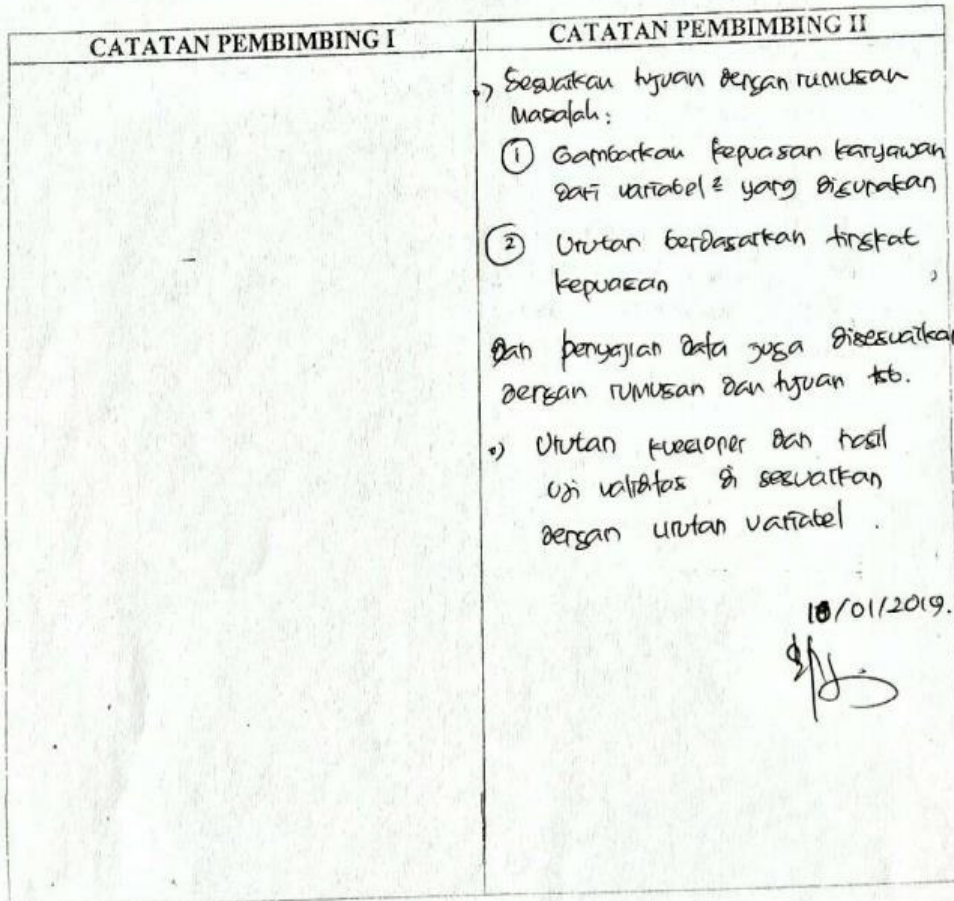 CATATAN PEMBIMBING I
CATATAN PEMBIMBING II
•) Sesuaikan tujuan dengan rumusan
masalah:
① Gambarkan kepuasan karyawan
dari variabel² yang digunakan
② Urutan berdasarkan tingkat
kepuasan
dan penyajian data juga disesuaikan
dengan rumusan dan tujuan tsb.
•) Urutan kuesioner dan hasil
uji validitas di sesuaikan
dengan urutan variabel.
/01/2019.